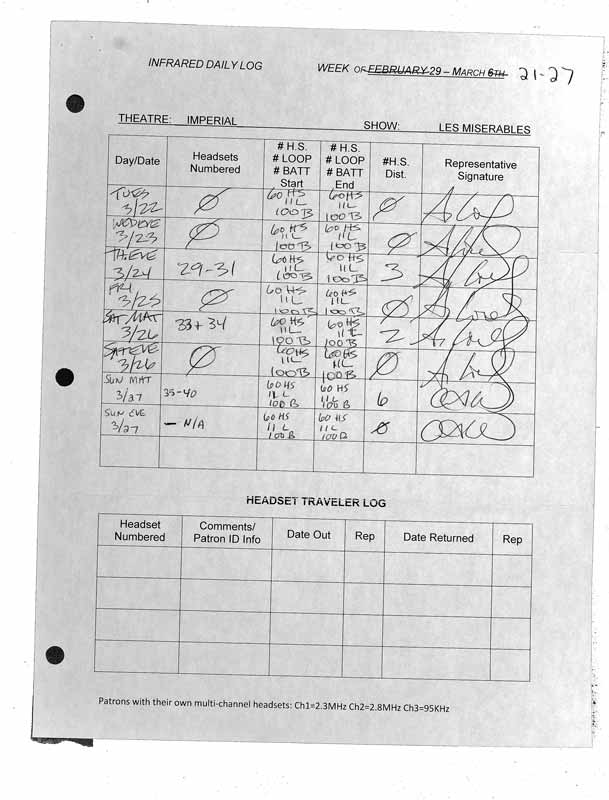 INFRARED DAILY LOG WEEK OF FEBRUARY 29 – MARCH 6TH 21-27
THEATRE: IMPERIAL SHOW: LES MISERABLES
Day/Date Headsets Numbered # H.S. # LOOP # BATT Start # H.S. # LOOP # BATT End #H.S. Dist. Representative Signature
TUES 3/22 Ø 60HS 11L 100B 60HS 11L 100B Ø
WED EVE 3/23 Ø 60HS 11L 100B 60HS 11L 100B Ø
TH EVE 3/24 29-31 60HS 11L 100B 60HS 11L 100B 3
FRI 3/25 Ø 60HS 11L 100B 60HS 11L 100B Ø
SAT MAT 3/26 33+34 60HS 11L 100B 60HS 11L 100B 2
SAT EVE 3/26 Ø 60HS 11L 100B 60HS 11L 100B Ø
SUN MAT 3/27 35-40 60HS 11L 100B 60HS 11L 100B 6
SUN EVE 3/27 — N/A 60HS 11L 100B 60HS 11L 100B Ø
HEADSET TRAVELER LOG
Headset Numbered Comments/ Patron ID Info Date Out Rep Date Returned Rep
Patrons with their own multi-channel headsets: Ch1=2.3MHz Ch2=2.8MHz Ch3=95KHz